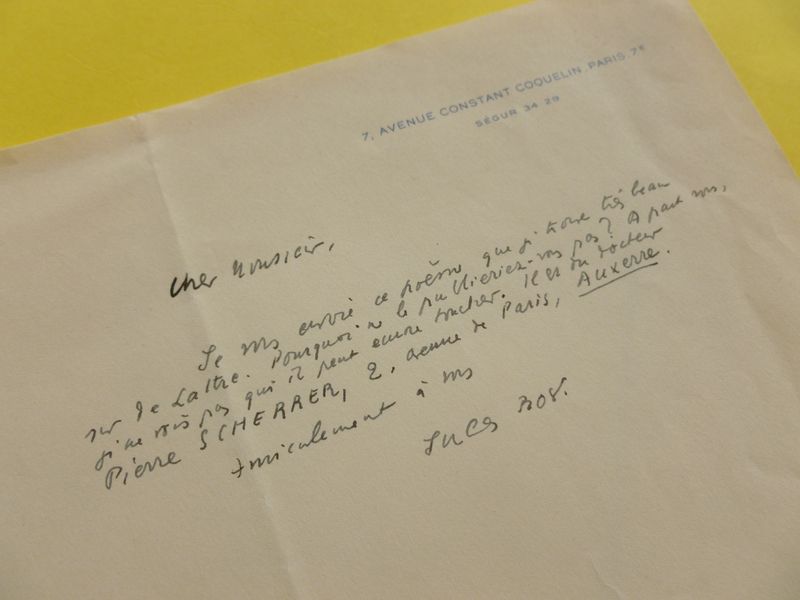 7, AVENUE CONSTANT COQUELIN. PARIS. 7E
SÉGUR 34 29
Cher Monsieur,
Je vous envoie ce poème que je trouve très beau
sur de Lattre. Pourquoi ne le publieriez-vous pas? A part vous,
je ne vois pas qui il peut encore toucher. Il est du docteur
Pierre SCHERRER, 2, avenue de Paris, Auxerre.
Amicalement à vous